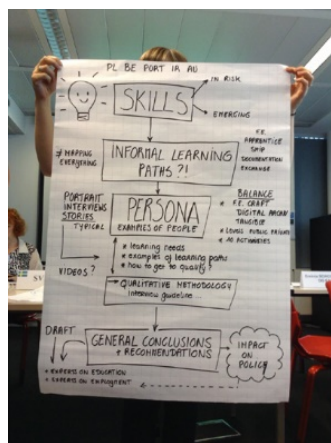 PL BE PORT IR AU
SKILLS
IN RISK
EMERGING
≠ MAPPING
EVERYTHING
INFORMAL LEARNING
PATHS ?!
F.E.
APPRENTICE
SHIP
DOCUMENTATION
EXCHANGE
PORTRAIT
INTERVIEWS
STORIES
TYPICAL
PERSONA
EXAMPLES OF PEOPLE
BALANCE
F.E. CRAFT
DIGITAL
TANGIBLE
LEVELS PUBLIC PRIVATE
VIDEOS ?
* learning needs
* examples of learning paths
* how to get to quality?
QUALITATIVE METHODOLOGY
interview guideline ...
DRAFT
GENERAL CONCLUSIONS
+ RECOMMENDATIONS
IMPACT
ON
POLICY
+ EXPERTS ON EDUCATION
+ EXPERTS ON EMPLOYMENT